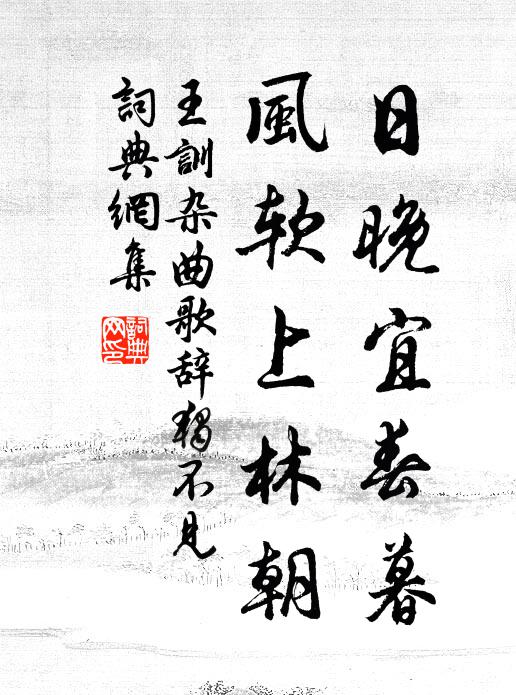 日晚宜春暮
風软上林朝
王訓杂曲歌辞獨不見
詞典網集
詞典
网印